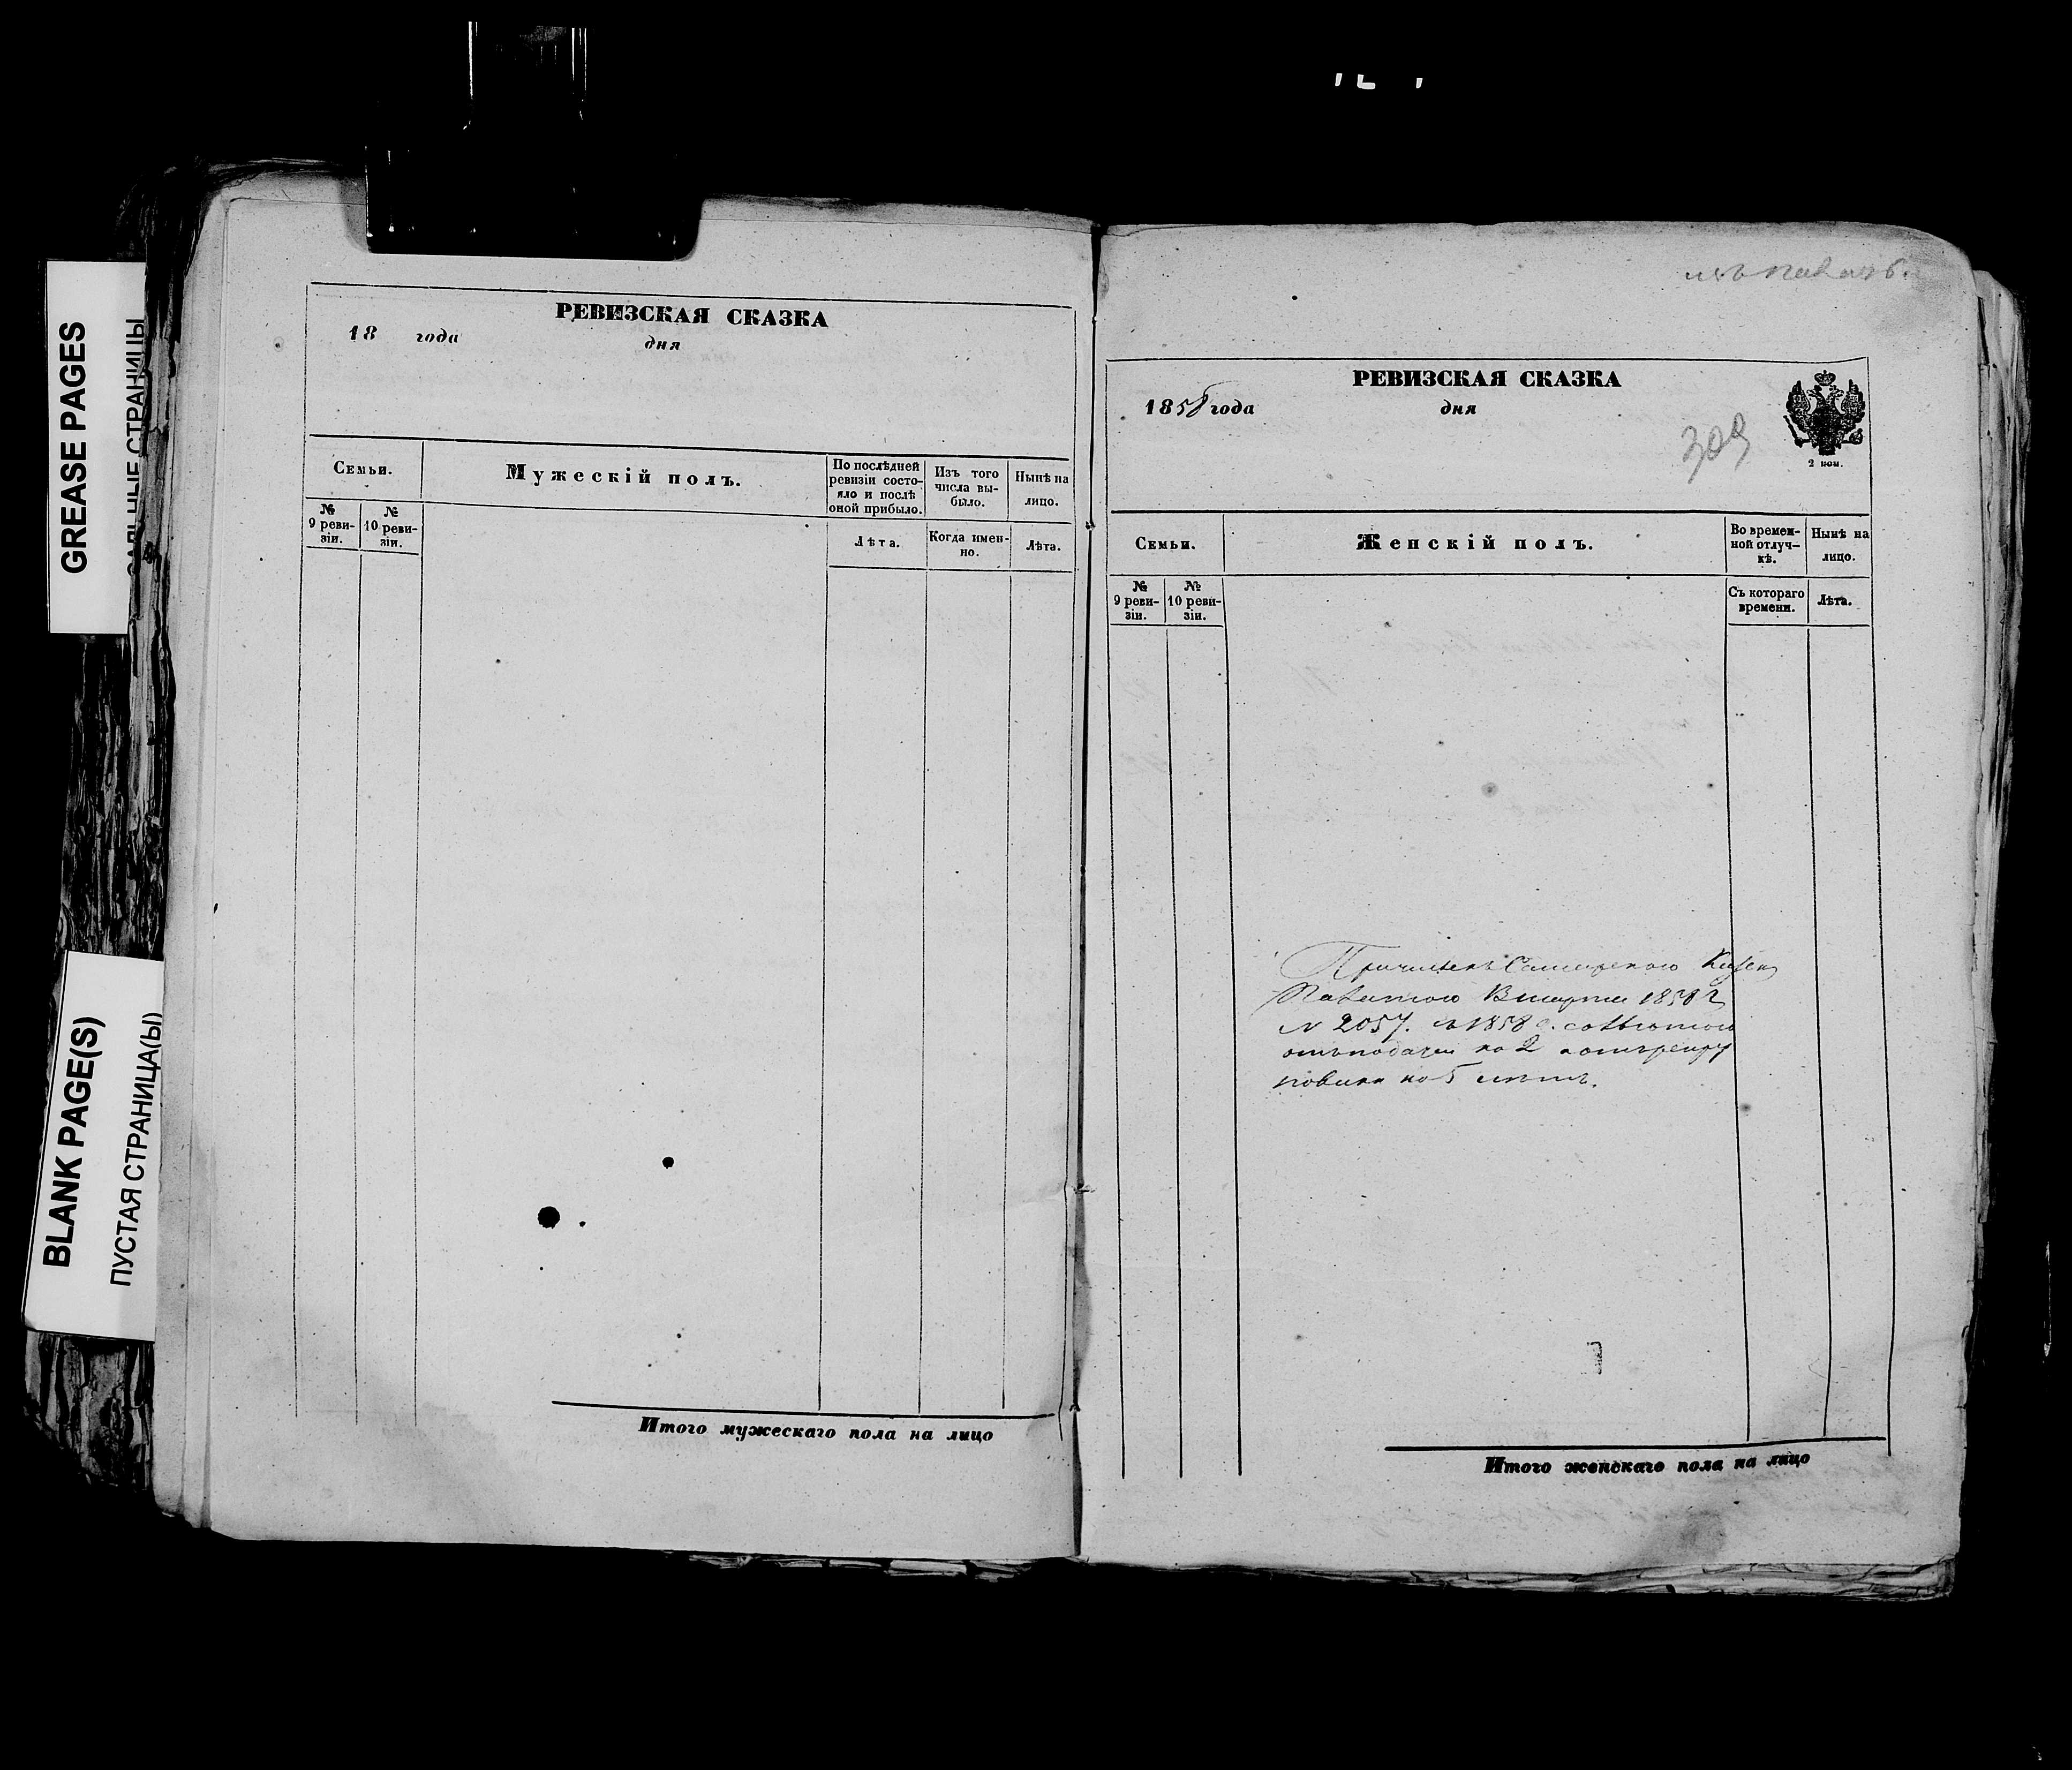 GREASE PAGES
САЛЬНЫЕ СТРАНИЦЫ
BLANK PAGE(S)
ПУСТАЯ СТРАНИЦА(Ы)
РЕВИЗСКАЯ СКАЗКА
18 года дня
Семьи.
Мужескій полъ.
По послѣдней ревизіи состо-
яло и послѣ оной прибыло.
Изъ того числа вы-
было.
Нынѣ на лицо.
№ 9 реви-
зіи.
№ 10 реви-
зіи.
Лѣта.
Когда имен-
но.
Лѣта.
Итого мужескаго пола на лицо
РЕВИЗСКАЯ СКАЗКА
1858 года дня
309
2 коп.
Семьи.
Женскій полъ.
Во времен-
ной отлуч-
кѣ.
Нынѣ на лицо.
№ 9 реви-
зіи.
№ 10 реви-
зіи.
Съ котораго времени.
Лѣта.
Причисленъ Самарскою Казен
Палатою 1858 г
№ 2057. съ 1858 г. со льготою
отъ подачи на 2 а отъ рекру
повин на 5 лѣтъ.
Итого женскаго пола на лицо